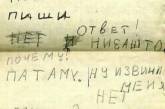 ПИШИ
ОТВЕТ!
НЕТ И НИЗАШТО,
ПОЧЕМУ!
ПАТАМУ. НУ ИЗВИНИ
МЕЙ.
НЕТ